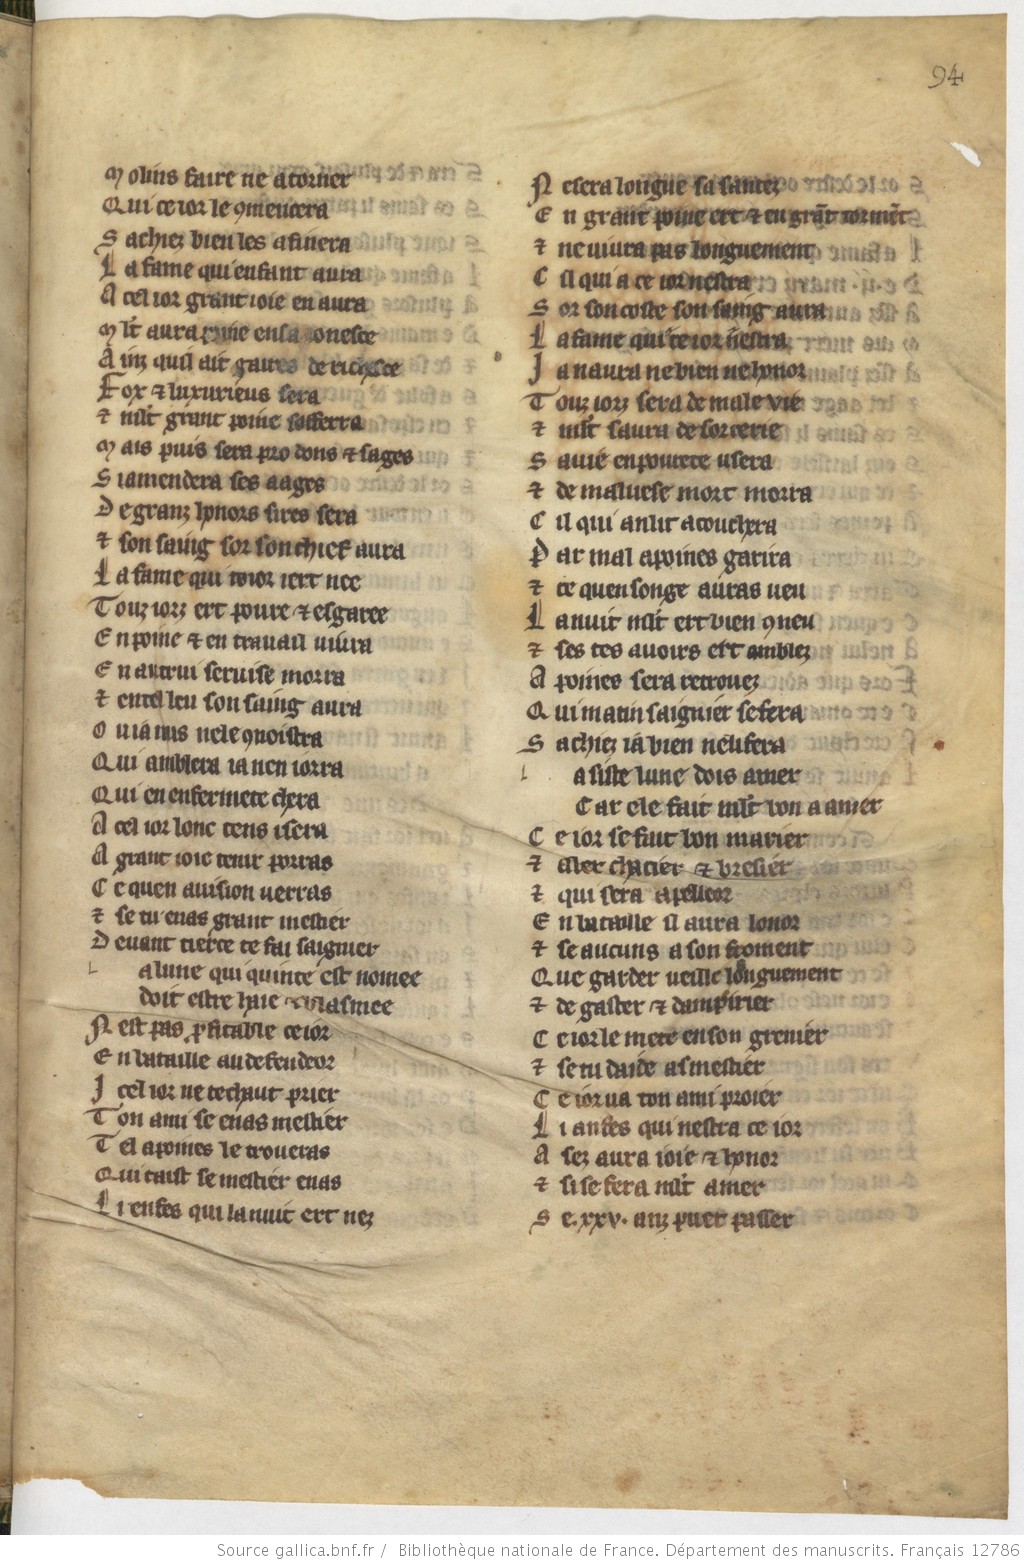 94
Molins faire ne atorner
Qui ce ior le 9mencera
Sachiez bien les afinera
La fame qui enfant aura
A cel ior grant ioie en aura
Mlt aura en sa ionesce
Ainz quil ait gaires de richesce
Fox & luxurieus sera
& mlt grant poine sofferra
Mais puis sera prodons & sages
Si amendera ses aages
De granz honors sires sera
& son saing sor son chief aura
La fame qui ior iert nee
Touz iorz ert poure & esgaree
En poine & en travail vivra
En autrui servise morra
& en tel leu son saing aura
Ou ia nus ne le 9noistra
Qui amblera ia nen iorra
Qui en enfermete chera
A cel ior lonc tens i sera
A grant ioie tenir porras
Ce quen avision verras
& se tu en as grant mestier
Devant tierce te fai saignier
l
a lune qui quinte est nomee
doit estre haie & blasmee
Nest pas profitable ce ior
En bataille au defendeor
Icel ior ne te chaut prier
Ton ami se en as mestier
Tel apoines le troveras
Qui taist se mestier en as
Li enfes qui la nuit ert nez
Ne sera longue sa santez
En grant poine ert & en grāt tormēt
& ne vivra pas longuement
Cil qui a ce ior nestra
Sor son coste son saing aura
La fame qui ce ior nestra
Ia naura ne bien ne honor
Touz iorz sera de male vie
& mlt saura de sorcerie
Sa vie en poverte usera
& de malvese mort morra
Cil qui an lit acouchera
Par mal apoines garira
& ce quen songe auras veu
La nuit mlt ert bien 9neu
& ses tes avoirs est amblez
A poines sera retrovez
Qui matin saignier se fera
Sachiez ia bien neli fera
l
a siste lune dois amer
Car ele fait mlt bon a amer
Ce ior se fait bon marier
& aler chacier & breser
& qui sera apelleor
En bataille il aura lonor
& se aucuns a son froment
Que garder veille longuement
& de gaster & d'ampirier
Ce ior le mete en son grenier
& se tu daide as mestier
Ce ior va ton ami proier
Li anfes qui nestra ce ior
Asez aura ioie & honor
& si se fera mlt amer
Se .xxv. anz puet passer
Source gallica.bnf.fr / Bibliothèque nationale de France. Département des manuscrits. Français 12786